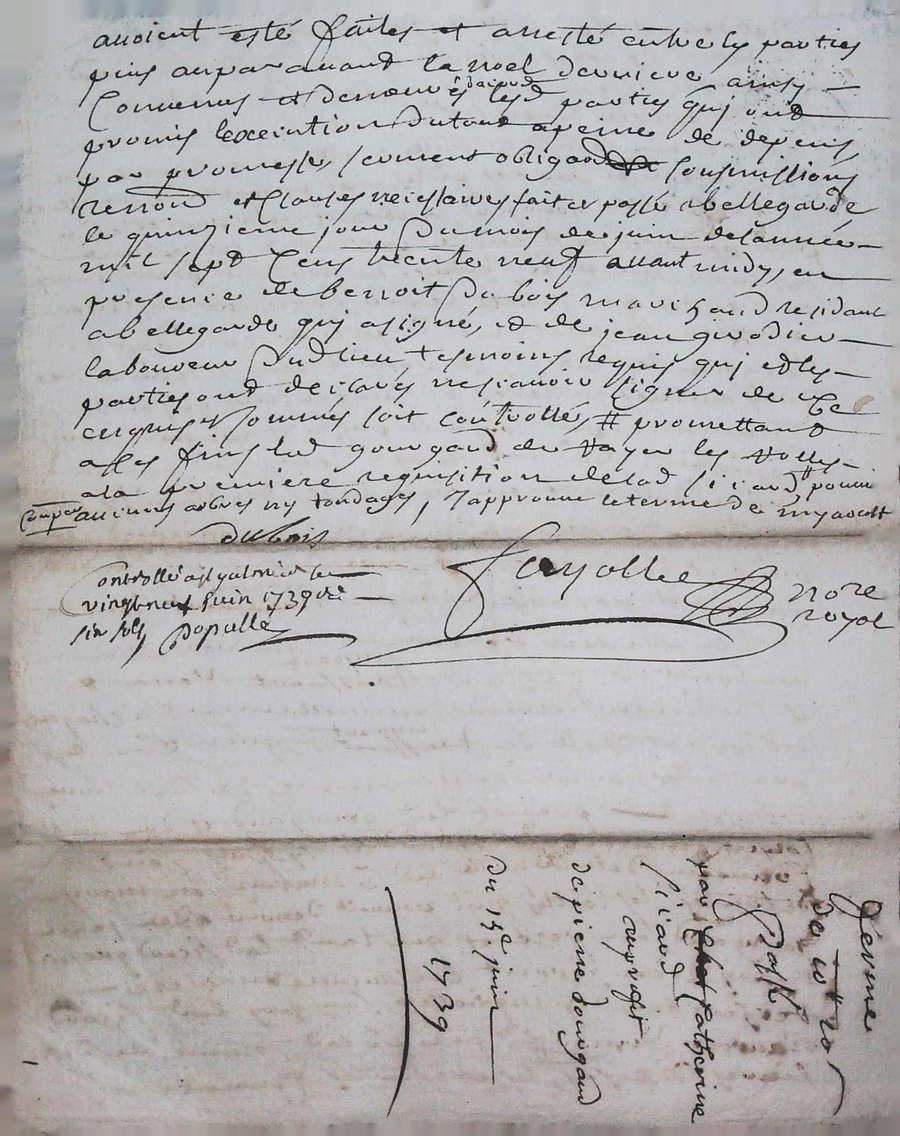 avoient esté faites et aresté entre les parties
puis auparavant la noel derniere ainsy
Convenus et demeurés daccord lesd parties qui ont
promis lexecution du tout a peine de depens
par promesse serment obligaon soumissions
renon et Clauses necessaires fait et passé a bellegarde
le quinzieme jour du mois de juin de lannée
mil sept Cens trente neuf avant midy, en
presence de benoit Dubois marchand residant
a bellegarde qui a signé, et de jean
laboureur dud lieu tesmoins requis qui et les
parties ont declarés ne scavoir signer de ce
enquis et sommés soit controllé, # promettant
a ses fins led gourgaud de payer les
a la premiere requisition de lad sicaud # pouvoir
Couper aucuns arbres ny tondages, J'approuve le terme de
dubois
Controllé a st galmier le
vingt neuf Juin 1739
six sols Populle
fayolle nore
royal
ferme
de 10 # 10 s
Passé
par Catherine
sicaud
au profit
de pierre gourgaud
du 15e juin
1739